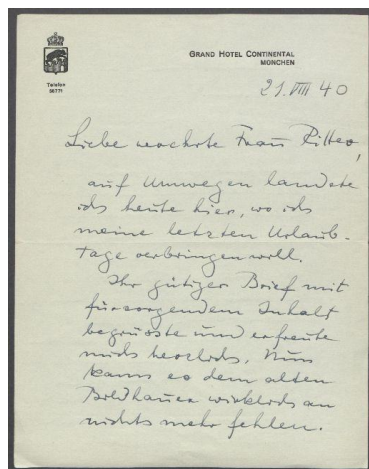 GRAND HOTEL CONTINENTAL
MÜNCHEN
Telefon
21. VIII 40
Liebe verehrte Frau Ritter,
auf Umwegen landete
ich heute hier, wo ich
meine letzten Urlaub-
tage verbringen will.
Ihr gütiger Brief mit
fürsorgendem Inhalt
begrüsste und erfreute
mich herzlich. Nun
kann es dem alten
Bildhauer wirklich an
nichts mehr fehlen.